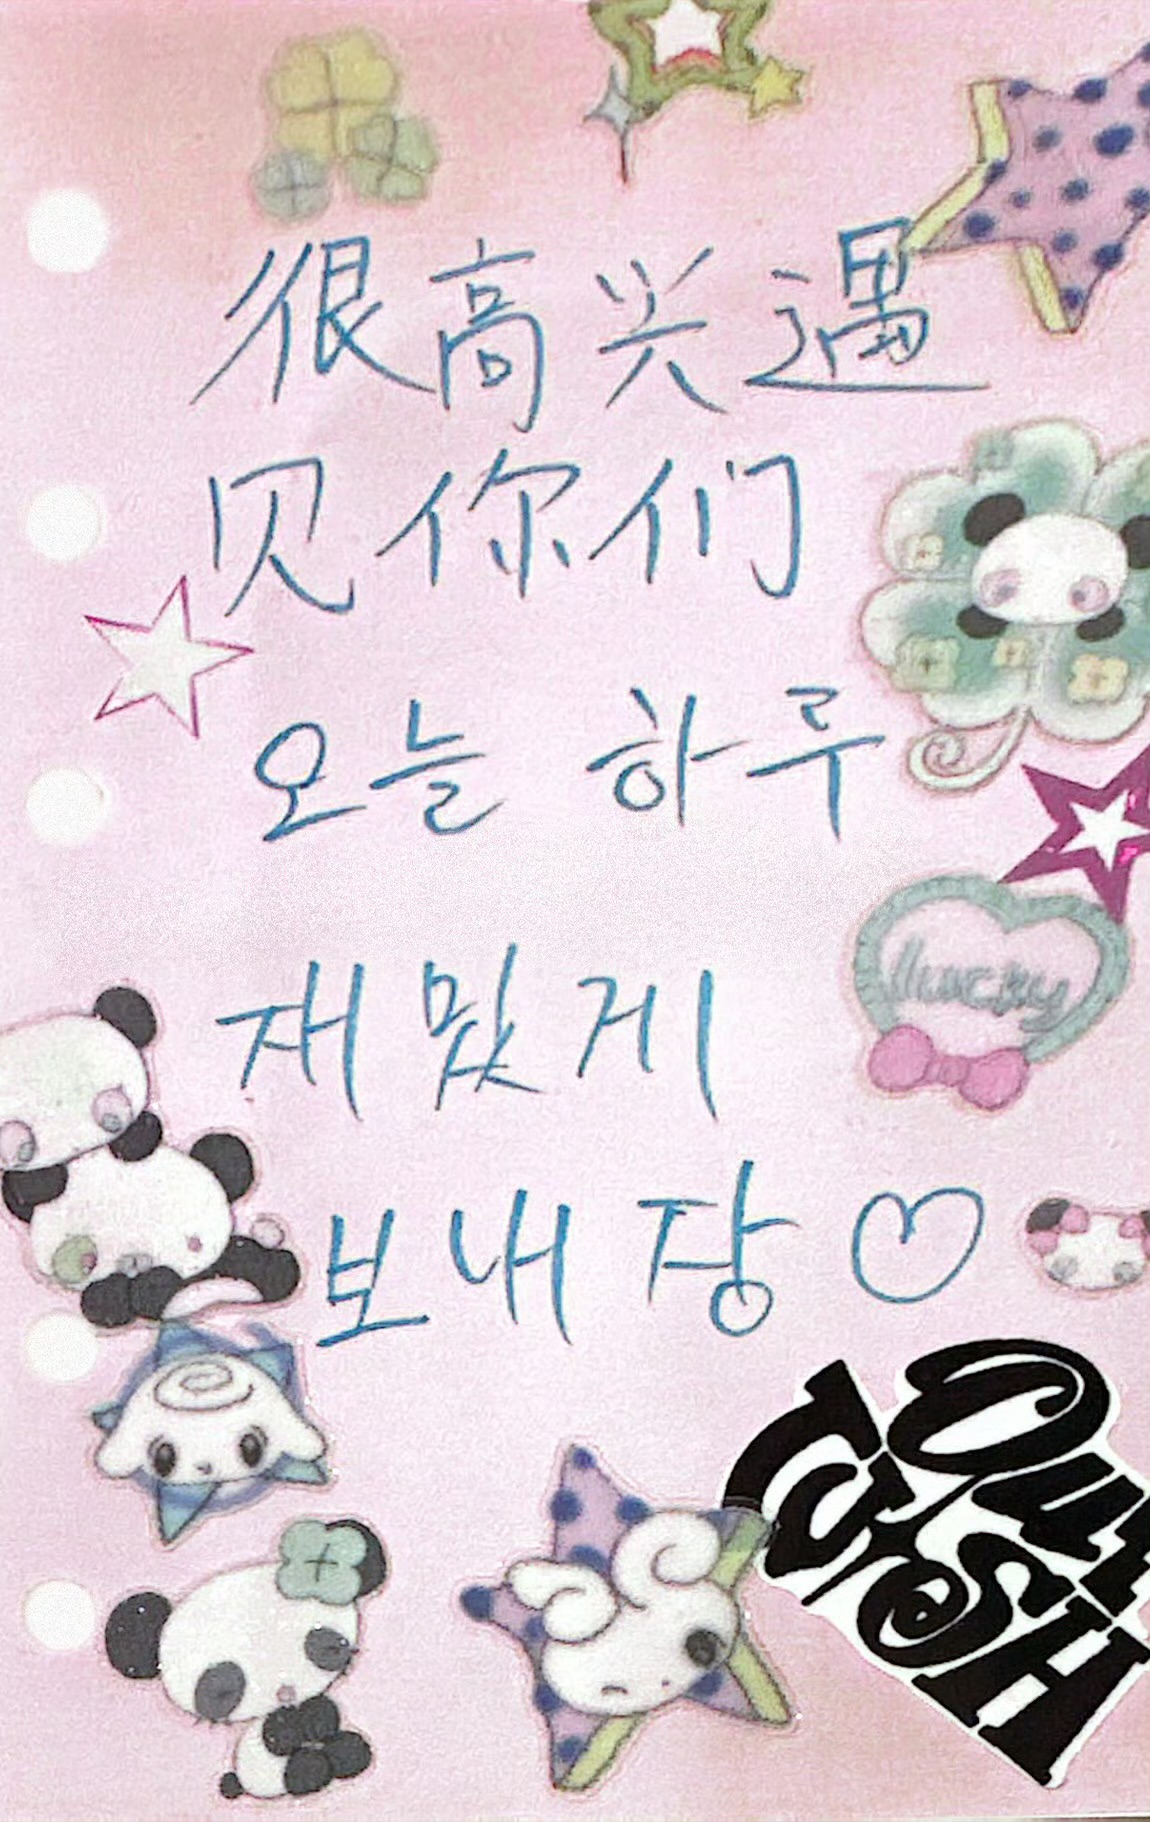 很高兴遇
见你们
오늘 하루
재밌게
보내장 ♡
lucky
Out